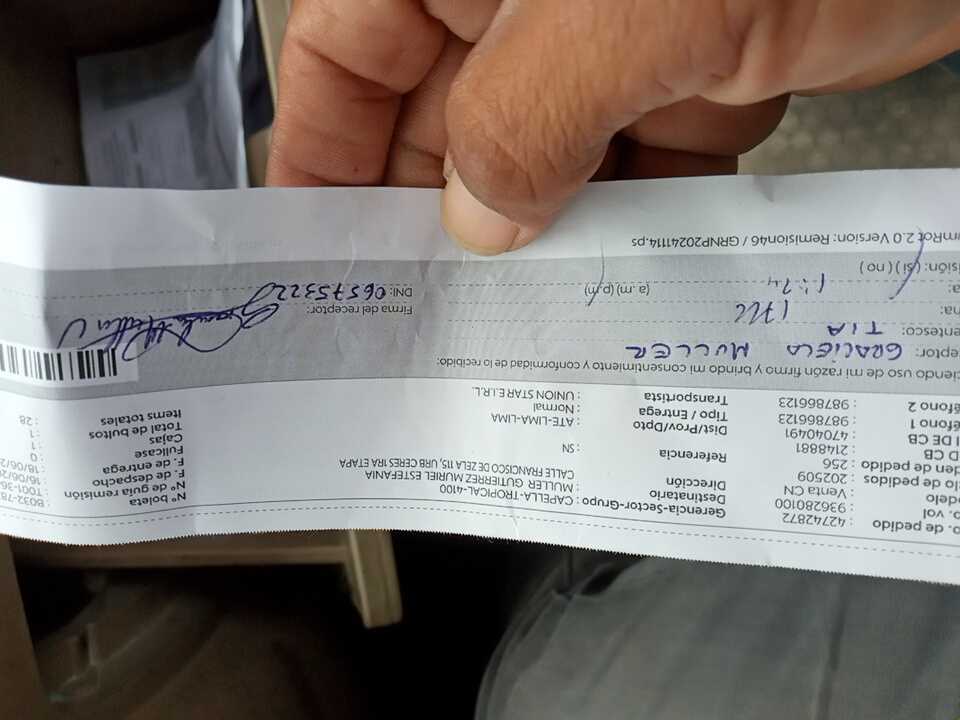 o. de pedido : 42742872
o. vol : 936280100
odelo : Venta CN
clo de pedidos : 202509
den de pedido : 256
D CB : 2148881
I DE CB : 47040491
éfono 1 : 987866123
éfono 2 : 987866123
Gerencia-Sector-Grupo : CAPELLA-TROPICAL-4100
Destinatario : MULLER GUTIERREZ MURIEL ESTEFANIA
Dirección : CALLE FRANCISCO DE ZELA 115, URB CERES 1RA ETAPA
Referencia : SN
Dist/Prov/Dpto : ATE-LIMA-LIMA
Tipo / Entrega : Normal
Transportista : UNION STAR E.I.R.L.
Nº boleta : B032-78
Nº de guía remisión : T001-36
F. de despacho : 16/06/20
F. de entrega : 18/06/2
Fullcase : 0
Cajas : 1
Total de bultos : 1
Items totales : 28
ciendo uso de mi razón firmo y brindo mi consentimiento y conformidad de lo recibido:
eptor: GRACIELA MULLER
entesco: TIA
na:
a: 1:24 (a.m) (p.m)
isión: (si) ( no )
Firma del receptor:
DNI:
mRot 2.0 Version: Remision46 / GRNP20241114.ps